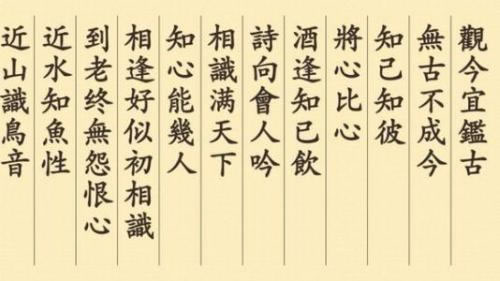 觀今宜鑑古
無古不成今
知己知彼
將心比心
酒逢知已飲
詩向會人吟
相識满天下
知心能幾人
相逢好似初相識
到老终無怨恨心
近水知魚性
近山識鳥音